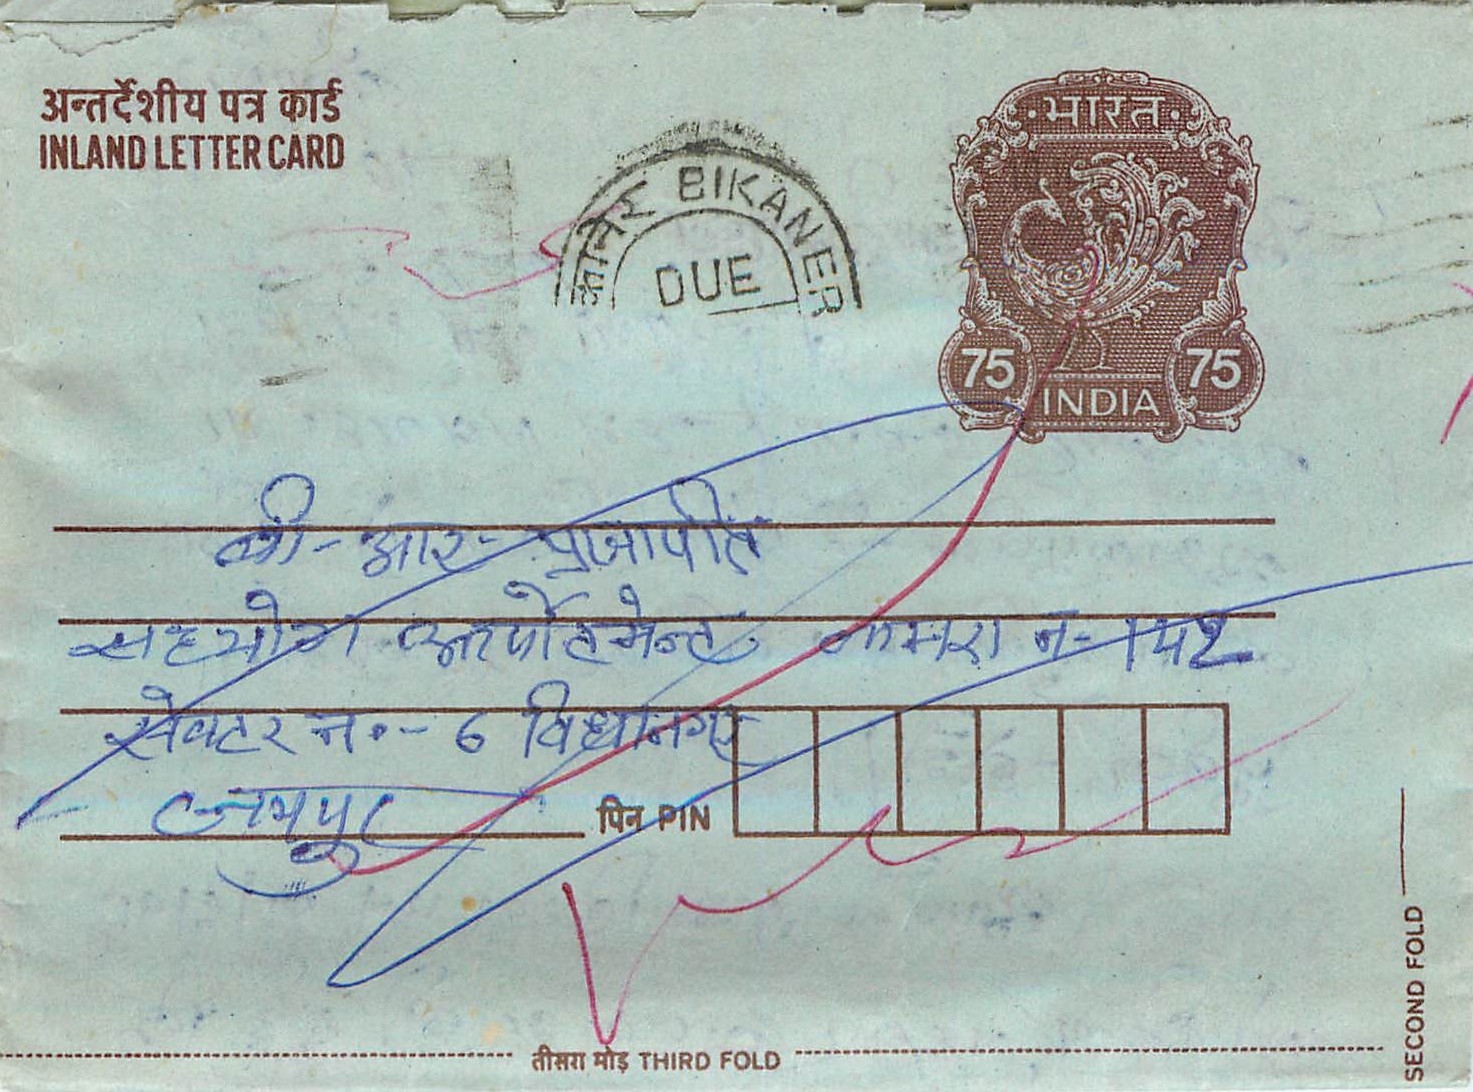 अन्तर्देशीय पत्र कार्ड
INLAND LETTER CARD
BIKANER
DUE
भारत
75 75
INDIA
बी-आर-प्रजापति
सहयोग अर्पाटमेन्ट कमरा न- 142
सेक्टर न०- 6 विधानगर
जयपुर
पिन PIN
तीसरा मोड़ THIRD FOLD
SECOND FOLD